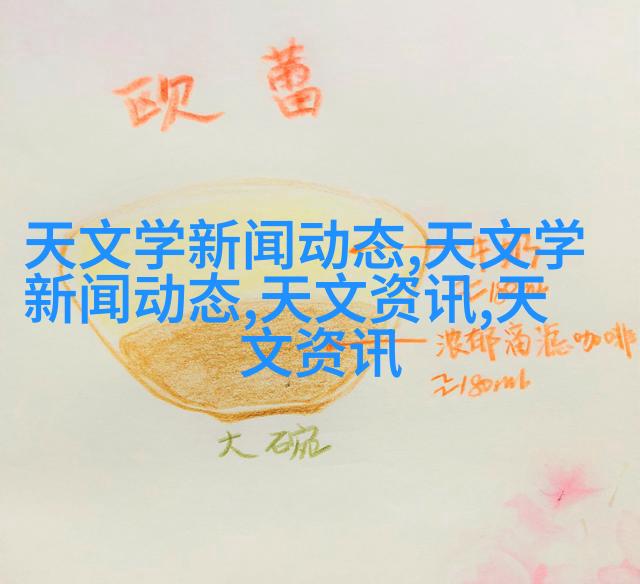 欧蕾
天文学新闻动态,天文学
新闻动态,天文资讯,天
文资讯
牛奶
≈180ml
浓郁滴滤咖啡
≈180ml
大碗